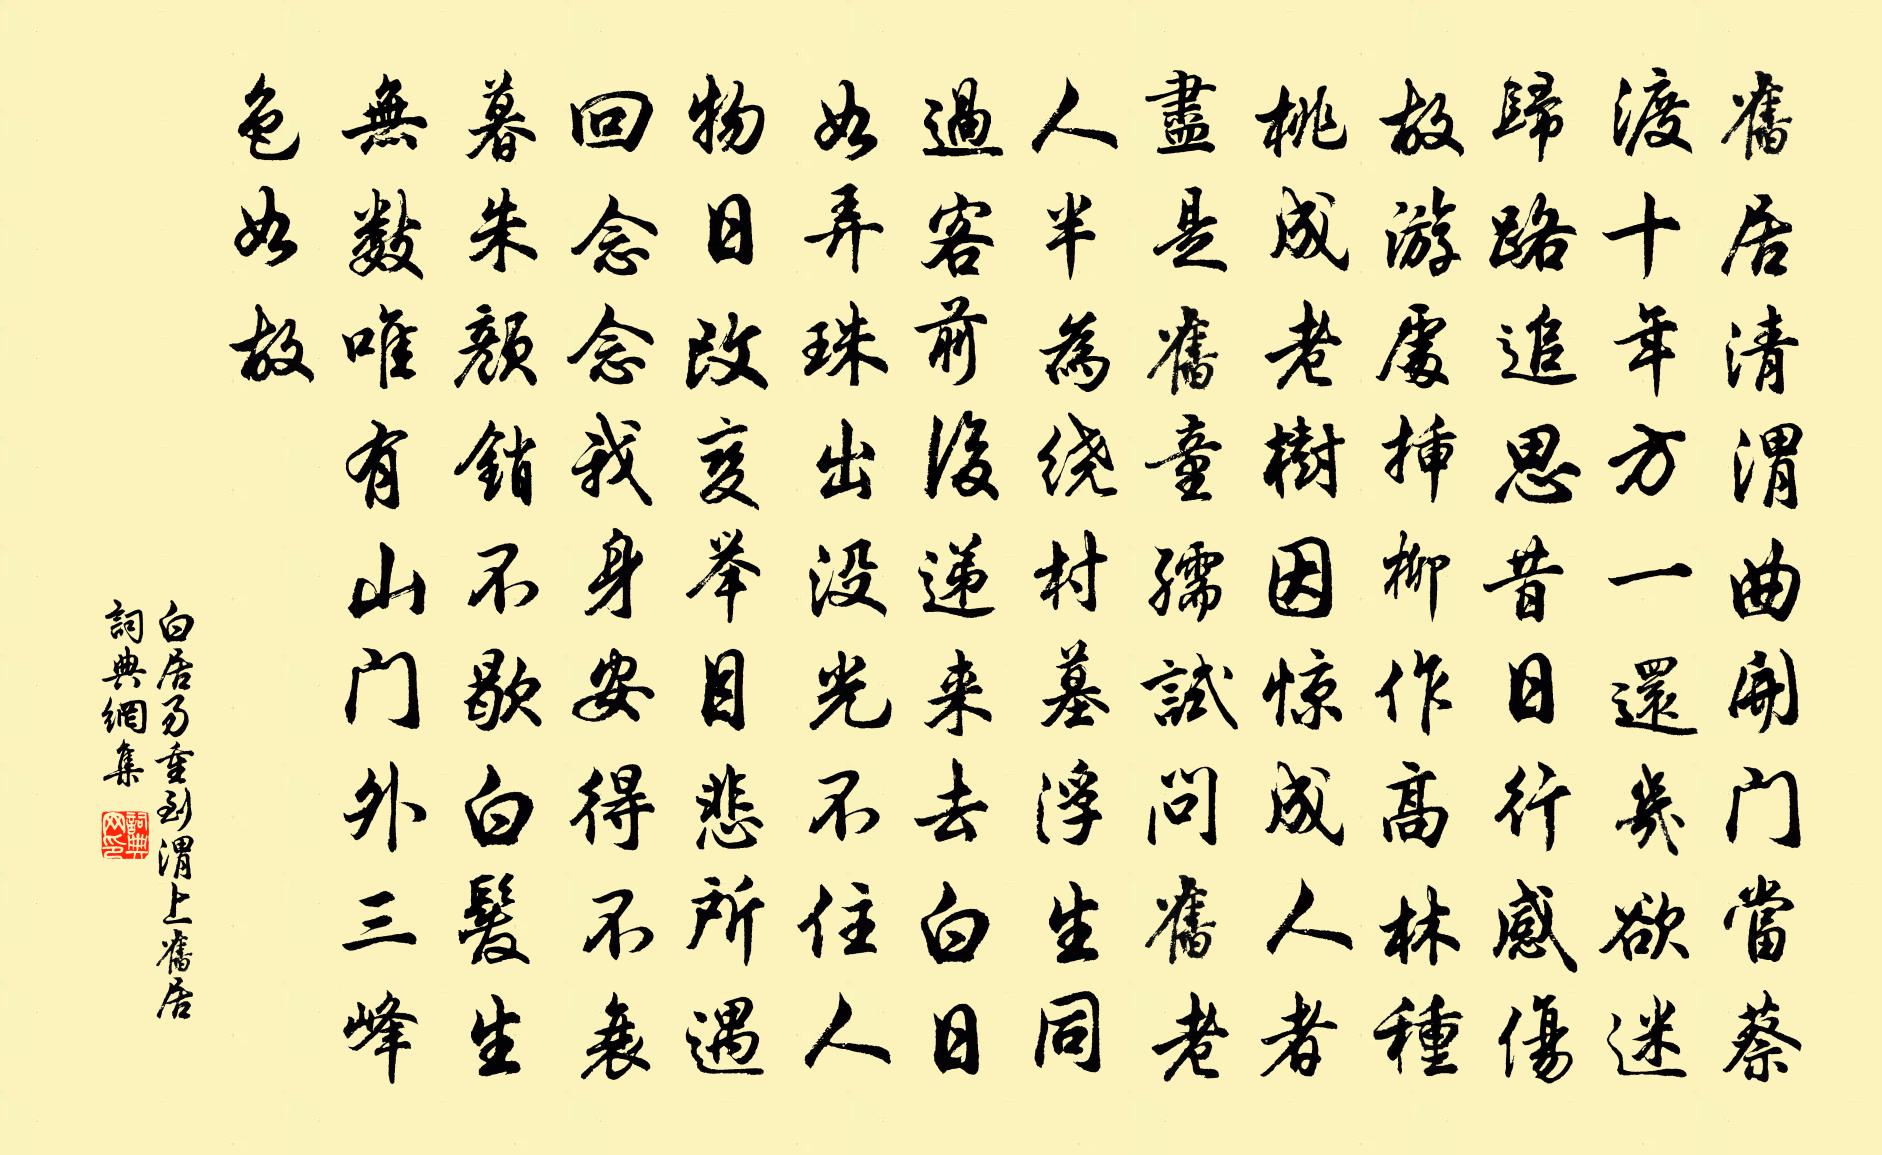 舊居清渭曲開门當蔡
渡十年方一還幾欲迷
歸路追思昔日行感傷
故游處挿柳作高林種
桃成老樹因惊成人者
盡是舊童孺試问舊老
人半為绕村墓浮生同
過客前後递来去白日
如弄珠出没光不住人
物日改变举目悲所遇
回念念我身安得不衰
暮朱颜銷不歇白髮生
無數唯有山门外三峰
色如故
白居易重到渭上舊居
詞典網集
詞典網印